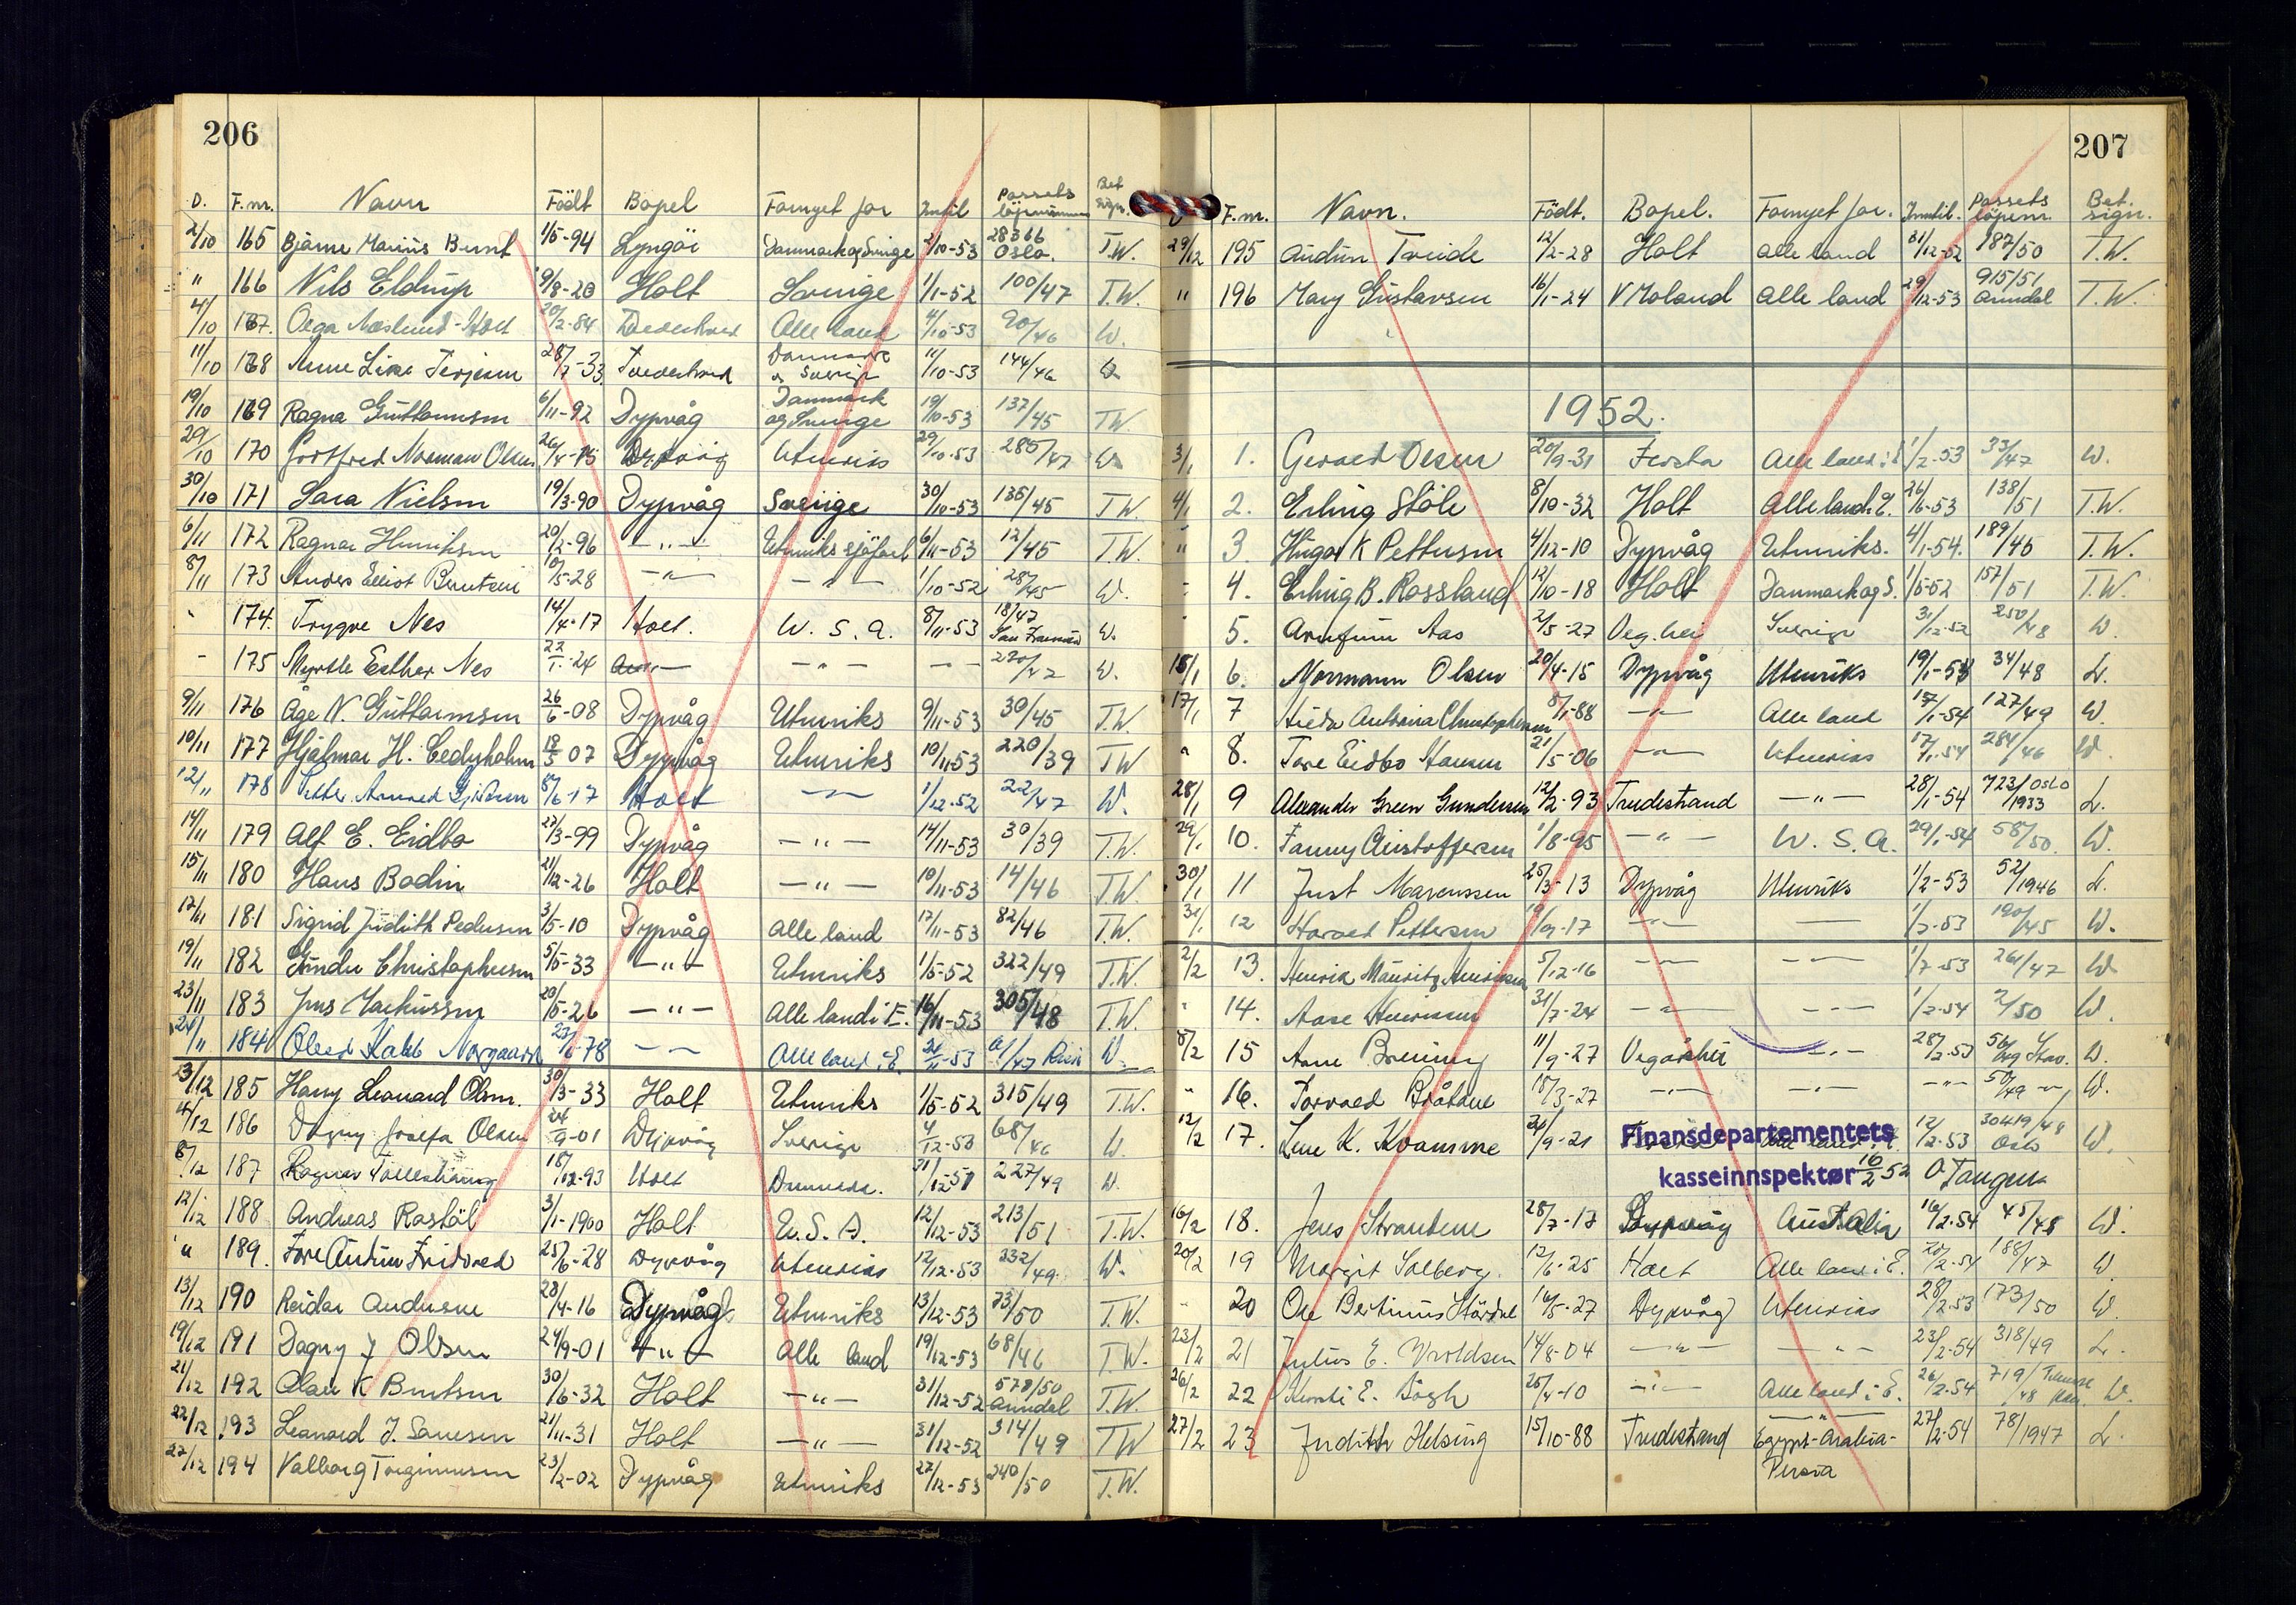 206
D. F.nr. Navn Födt Bopel Fornyet for Inntil Passets löpenummer Bet sign.
2/10 165 Bjarne Marius Bernt 1/5-94 Lyngör Danmark og Sverige 2/10-53 28366 Oslo. T.W.
" 166 Nils Eldrup 9/8-20 Holt Sverige 1/1-52 100/47 T.W.
4/10 167. Olga Næslund-Holt 20/2-84 Tvedestrand Alle land 4/10-53 90/46 W.
11/10 168 Anne Lise Terjesen 28/7-33 Tvedestrand Danmark og Sverige 11/10-53 144/46 W
19/10 169 Ragna Guttormsen 6/11-92 Dypvåg Danmark og Sverige 19/10-53 137/45 TW
29/10 170 Gottfred Norman Olsen 26/4-15 Dypvåg Utenriks 29/10-53 285/47 W
30/10 171 Sara Nielsen 19/3-90 Dypvåg Sverige 30/10-53 135/45 T.W.
6/11 172 Ragnar Henriksen 20/2-96 — " — Utenriks sjöfart 6/11-53 12/45 T.W.
8/11 173 Anders Elliot Berntsen 10/5-28 — " — — " — 1/10-52 28/45 W.
" 174. Trygve Nes 14/4-17 Holt. U.S.A. 8/11-53 18/47 San Francisco W.
" 175 Myrtle Esther Nes 22/1-24 — — " — — " — W.
9/11 176 Åge N. Guttormsen 26/6-08 Dypvåg Utenriks 9/11-53 30/45 T.W.
10/11 177 Hjalmar H. Cedyholm 18/5 07 Dypvåg Utenriks 10/11-53 220/39 TW
12/11 178 8/6-17 Holt — " — 1/12-52 22/47 W.
14/11 179 Alf E. Eidbo 27/3-99 Dypvåg — " — 14/11-53 30/39 T.W.
15/11 180 Hans Bodin 21/12-26 Holt — " — 10/11-53 14/46 T.W.
17/11 181 Sigrid Judith Pedersen 3/5-10 Dypvåg Alle land 17/11-53 82/46 T.W.
19/11 182 Christophersen 5/5-33 — " — Utenriks 1/5-52 322/49 T.W.
23/11 183 Jens Markussen 20/5-26 — " — Alle land i E. 16/11-53 305/48 T.W.
24/11 184 Oluf Kaleb Norgaard -78 — " — Alle land i E. -53 W.
3/12 185 Harry Leonard Olsen. 30/3-33 Holt Utenriks 1/5-52 315/49 T.W.
4/12 186 Dagny Josefa Olsen 24/9-01 Dypvåg Sverige 4/12-53 68/46 W.
8/12 187 Ragnar 18/12-93 Holt Danmark. 31/12-51 227/49 W.
12/12 188 Andreas Rostöl 3/1-1900 Holt U.S.A. 12/12-53 213/51 T.W.
" 189. Tore Audun 25/6-28 Dypvåg Utenriks 12/12-53 332/49. W.
13/12 190 Reidar Andersen 28/4-16 Dypvåg Utenriks 13/12-53 73/50 T.W.
19/12 191 Dagny J Olsen 24/9-01 — " — Alle land 19/12-53 68/46 T.W.
21/12 192 Olav K Berntsen 30/6-32 Holt — " — 31/12-52 578/50 Arendal T.W.
22/12 193 Leonard J. Sørensen 21/11-31 Holt — " — 31/12-52 314/49 TW
27/12 194 Valborg Torgrimsen 23/2-02 Dypvåg Utenriks 27/12-53 240/50 T.W.
207
F.nr. Navn. Födt. Bopel. Fornyet for. Inntil. Passets löpenr. Bet. sign.
29/12 195 Audun Tveide 12/2-28 Holt Alle land 31/12-52 187/50 T.W.
" 196 Mary Gustavsen 16/1-24 V Moland Alle land 29/12-53 915/51 Arendal T.W.
1952.
3/1 1. Gerard Olsen 20/9-31 Alle land i E 1/2-53 33/47 W.
4/1 2. Erling Stöle 8/10-32 Holt Alle land i E. 26/6-53 138/51 T.W.
" 3. Hugo K Pettersen 4/12-10 Dypvåg Utenriks. 4/1-54. 189/46 T.W.
" 4. Erling B. Rossland 12/10-18 Holt Danmark og S. 1/5-52 157/51 T.W.
" 5. Arnfinn Aas 2/5-27 Veg.hei Sverige 31/12-52 250/48 W.
18/1 6. Normann Olsen 20/4-15 Dypvåg Utenriks 19/1-54 34/48 L.
17/1 7 Antonia Christophersen 8/1-88 — " — Alle land 17/1-54 127/49 W.
" 8. Tore Eidbo Hansen 21/5-06 — " — Utenriks 17/1-54 284/46 W.
28/1 9 Alexander Green Gundersen 12/2-93 Tvedestrand — " — 28/1-54 723/Oslo 1933 L.
29/1 10. Fanny Christoffersen 1/8-95 — " — U.S.A. 29/1-54 58/50. W.
30/1 11 Just Marcussen 25/3-13 Dypvåg Utenriks 1/2-53 52/1946 L.
31/1 12 Harald Pettersen 19/9-17 — " — — " — 1/2-53 190/45 W.
2/2 13. Henrik Mauritz Henriksen 5/12-16 — " — — " — 1/7-53 261/47 W
" 14. Aase Henriksen 31/7-24 — " — — " — 1/2-54 2/50 W.
8/2 15 Arne Breiung 11/9-27 Vegårshei — " — 28/2-53 56/49 Stav. W.
" 16. Torvald Bråtane 18/3-27 — " — — " — — " — 50/49 — " — W.
12/2 17. Lene K. Kvamme 26/9-21 12/2-53 30419/48 Oslo W.
Finansdepartementets
kasseinnspektør 16/2 52 O. Tangen
16/2 18. Jens Strandene 28/7-17 Dypvåg Australia 16/2-54 45/48 W.
20/2 19 Margit Solberg. 12/6-25 Holt Alle land i E. 20/2-54 188/47 W
" 20 Ole Bertinius Hårdal 16/5-27 Dypvåg Utenriks 28/2-53 173/50 W
23/2 21 Julius E. Vroldsen 14/8-04 — " — — " — 23/2-54 318/49 L.
26/2 22 E. Bögh 25/4-10 — " — Alle land i E. 26/2-54 719/48 W.
27/2 23 Judith Helsing 15/10-88 Tvedestrand — " — Egypt-Arabia-Persia 27/2-54 78/1947 L.